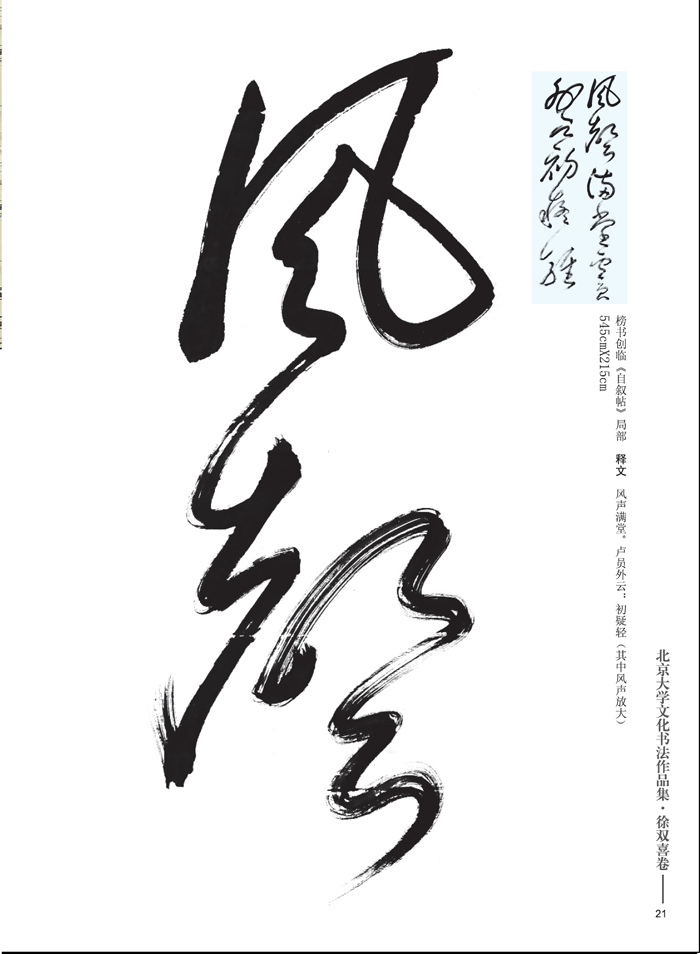 風聲
風聲滿堂盧員
外云初疑輕
榜书创临《自叙帖》局部　释文　风声满堂。卢员外云：初疑轻（其中风声放大）
545cmX215cm
北京大学文化书法作品集·徐双喜卷——
21